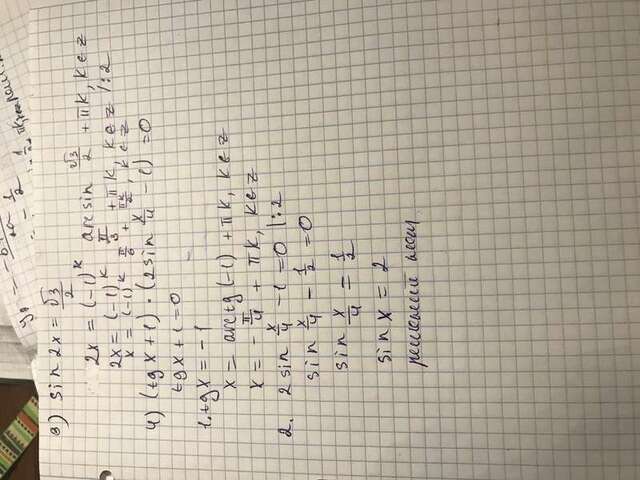 3) sin 2x = √3/2
2x = (-1)^k arcsin √3/2 + πk, k∈z
2x = (-1)^k π/3 + πk, k∈z /:2
x = (-1)^k π/6 + πk/2, k∈z
4) (tg x + 1) · (2sin x/4 - 1) = 0
tg x + 1 = 0
1. tg x = -1
x = arctg(-1) + πk, k∈z
x = -π/4 + πk, k∈z
2. 2 sin x/4 - 1 = 0 /:2
sin x/4 - 1/2 = 0
sin x/4 = 1/2
sin x = 2
решений